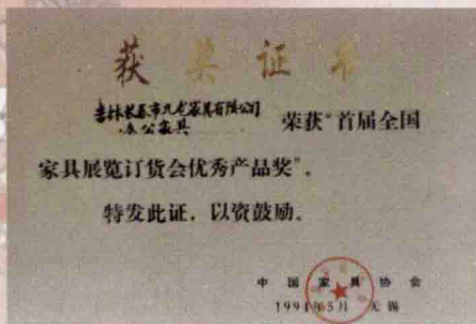 获奖证书
吉林长春市九龙家具有限公司
办公家具 荣获“首届全国
家具展览订货会优秀产品奖”。
特发此证，以资鼓励。
中国家具协会
1994年5月 无锡